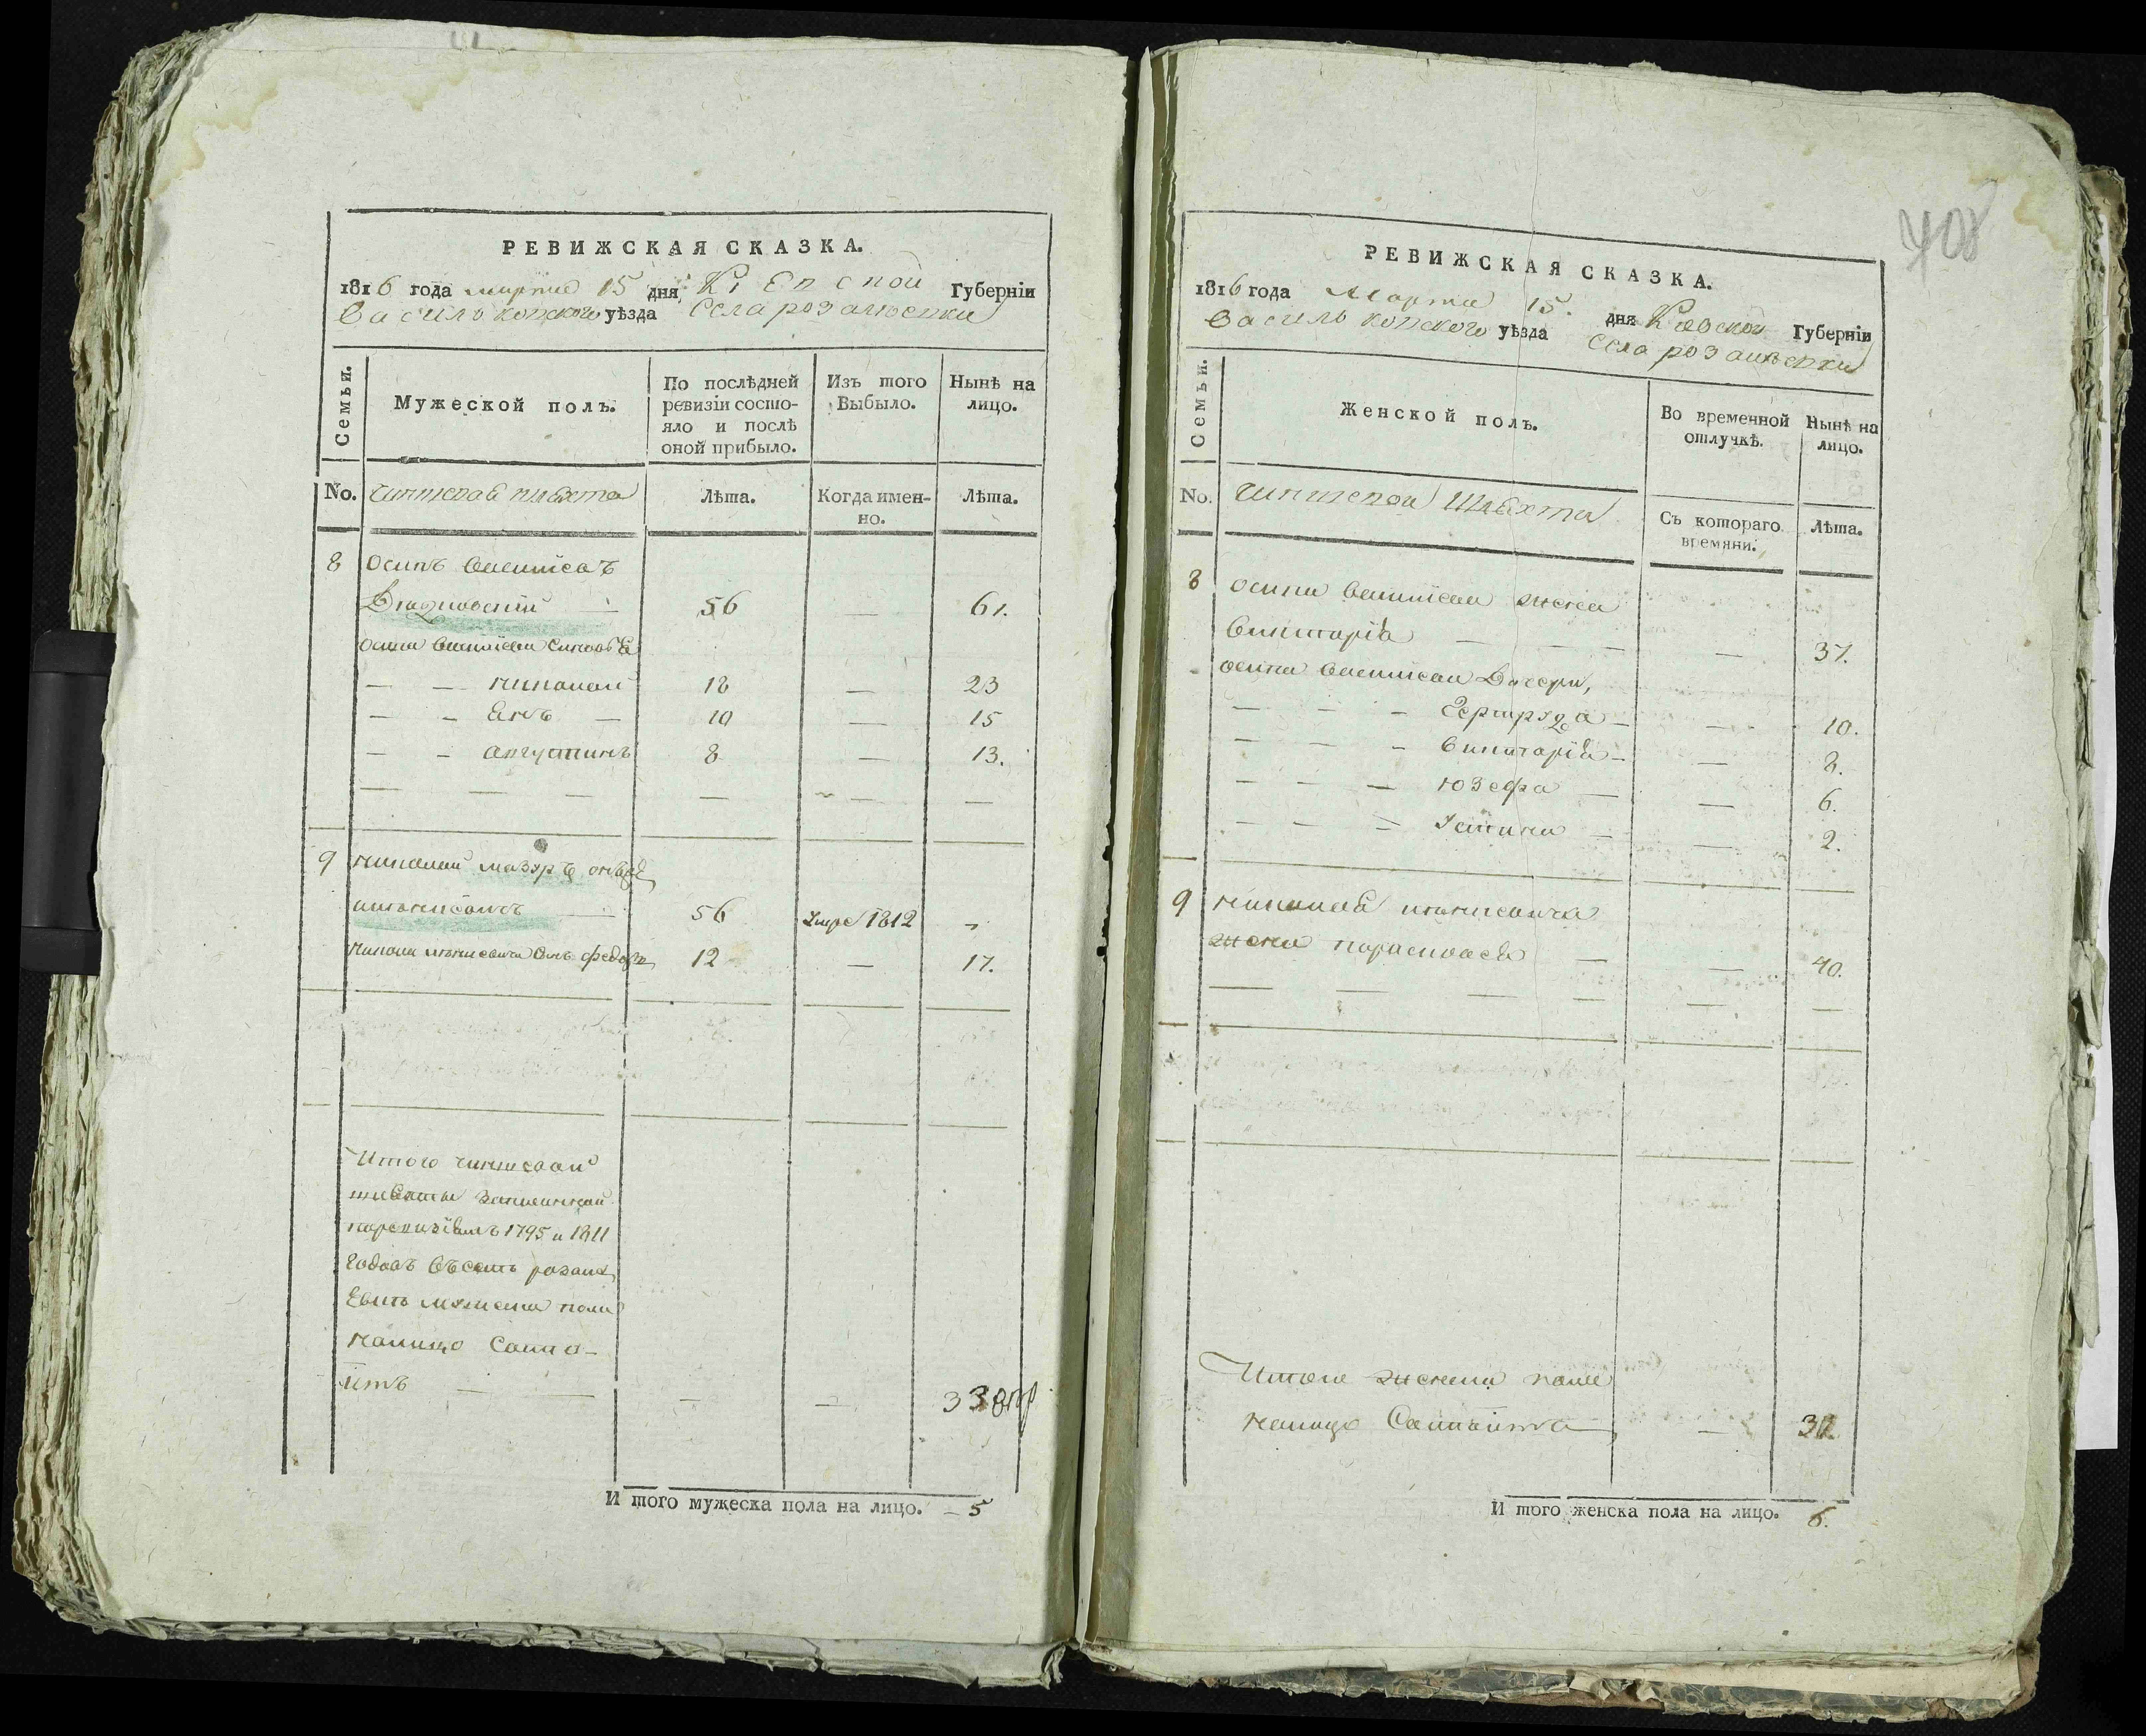 РЕВИЖСКАЯ СКАЗКА.
1816 года марта 15 дня Кіевской Губерніи
Васильковского уѣзда Села розалѣевки
Семьи.
Мужеской полъ.
По послѣдней ревизіи состо-
яло и послѣ
оной прибыло.
Изъ того
Выбыло.
Нынѣ на
лицо.
No. чиншевая шляхта Лѣта. Когда имен-
но. Лѣта.
8 Осипъ
56 — 61.
— — николай 18 — 23
— — Янъ — 10 — 15
— — августинъ 8 — 13.
— — — — — —
9 николай мазуръ
— 56 умре 1812 —
Сынъ федоръ 12 — 17.
Итого чиншевой
шляхты записанной
по ревизіямъ 1795 и 1811
годовъ въ селѣ розалѣ
евкѣ мужеска пола
налицо Состо-
итъ — — — — 33
И того мужеска пола на лицо. — 5
708
РЕВИЖСКАЯ СКАЗКА.
1816 года Марта 15. дня Киевской Губерніи
Васильковского уѣзда Села розалѣевки
Семьи.
Женской полъ.
Во временной
отлучкѣ.
Нынѣ на
лицо.
No. чиншевой Шляхты Съ котораго
времяни. Лѣта.
8 осипа жена
викторія — — — — 37.
осипа дочери,
— — — Гертруда — — 10.
— — — викторія — — 8.
— — — юзефа — — 6.
— — — Устина — — 2.
9 николая
жена парасковея — — 40.
— — — — — —
Итого женска пола
налицо Состоитъ — — 30.
И того женска пола на лицо. 6.